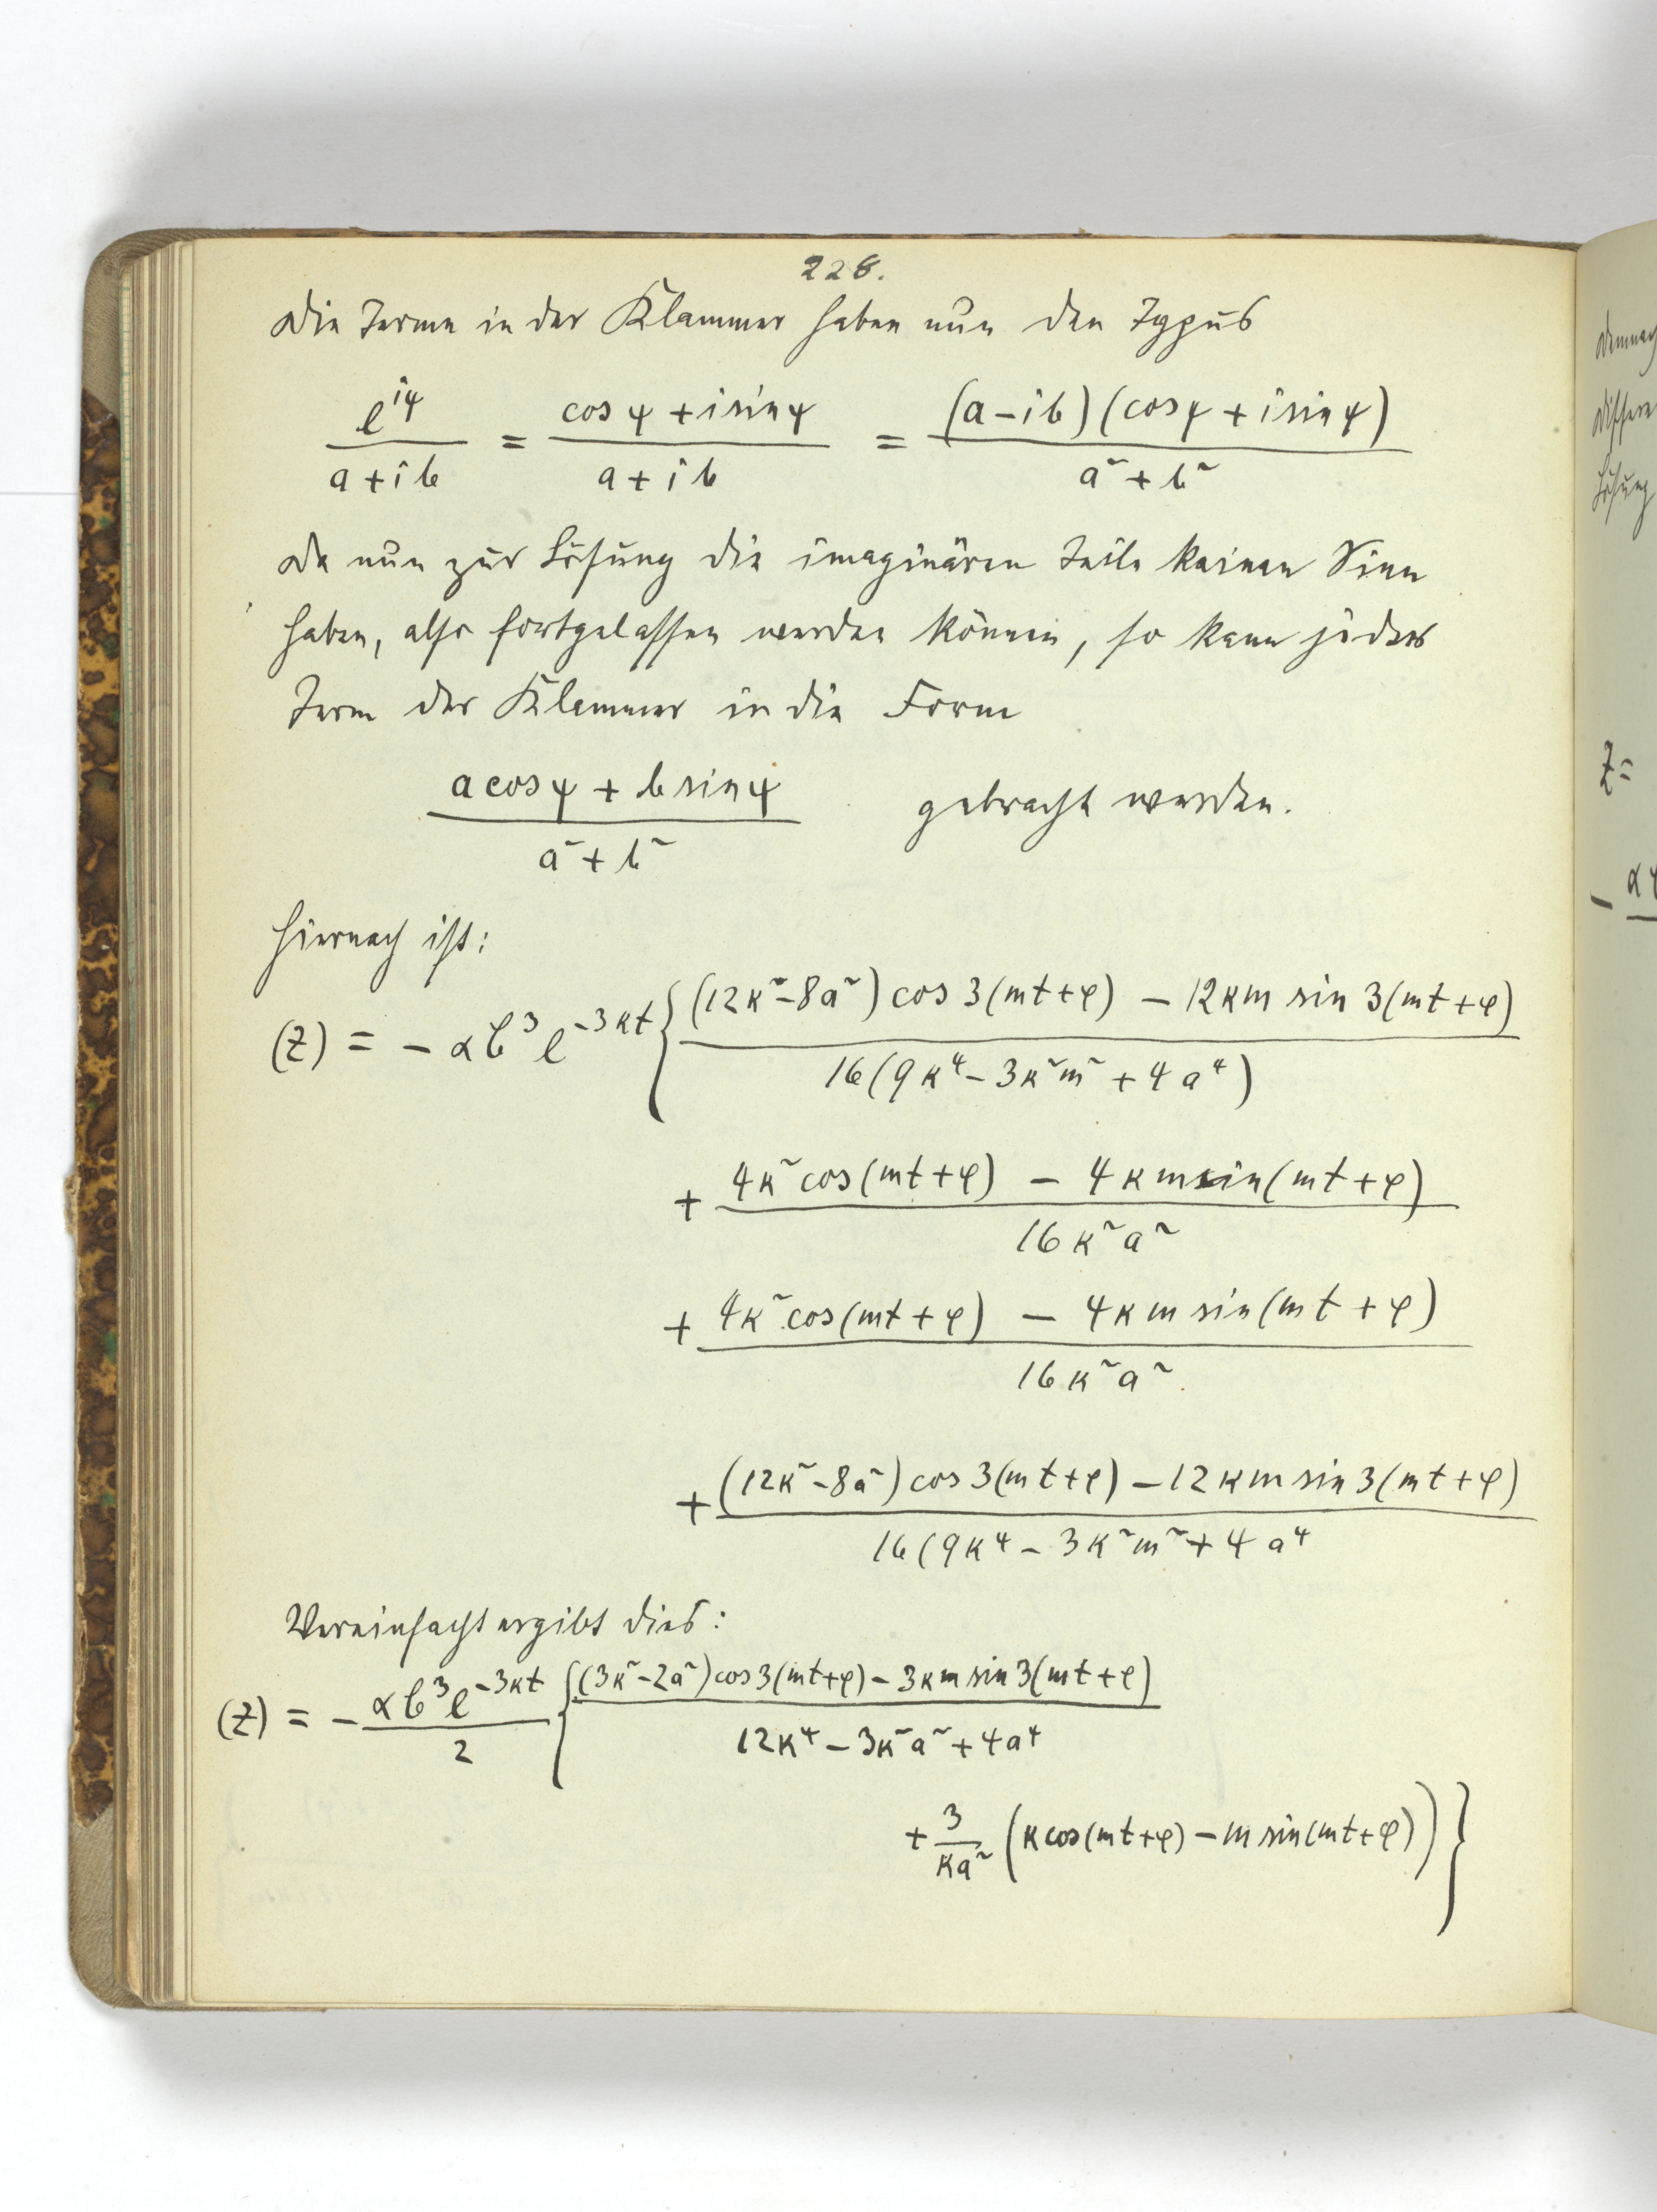 228.
Die Terme in der Klammer haben nun den Typus
e^{iψ} / (a + ib) = (cos ψ + i sin ψ) / (a + ib) = (a − ib)(cos ψ + i sin ψ) / (a² + b²)
Da nun zur Lösung die imaginären Teile keinen Sinn
haben, also fortgelassen werden können, so kann jeder
Term der Klammer in die Form
(a cos ψ + b sin ψ) / (a² + b²) gebracht werden.
Hiernach ist:
(z) = − α b³ e^{−3κt} { ((12κ² − 8a²) cos 3(mt + φ) − 12κm sin 3(mt + φ)) / 16(9κ⁴ − 3κ²m² + 4a⁴)
+ (4κ² cos(mt + φ) − 4κm sin(mt + φ)) / 16κ²a²
+ (4κ² cos(mt + φ) − 4κm sin(mt + φ)) / 16κ²a²
+ ((12κ² − 8a²) cos 3(mt + φ) − 12κm sin 3(mt + φ)) / 16(9κ⁴ − 3κ²m² + 4a⁴
Vereinfacht ergibt dies:
(z) = − α b³ e^{−3κt} / 2 { ((3κ² − 2a²) cos 3(mt + φ) − 3κm sin 3(mt + φ)) / (12κ⁴ − 3κ²a² + 4a⁴)
+ 3/(κa²) (κ cos(mt + φ) − m sin(mt + φ)) }
Demnach
Lösung
z =